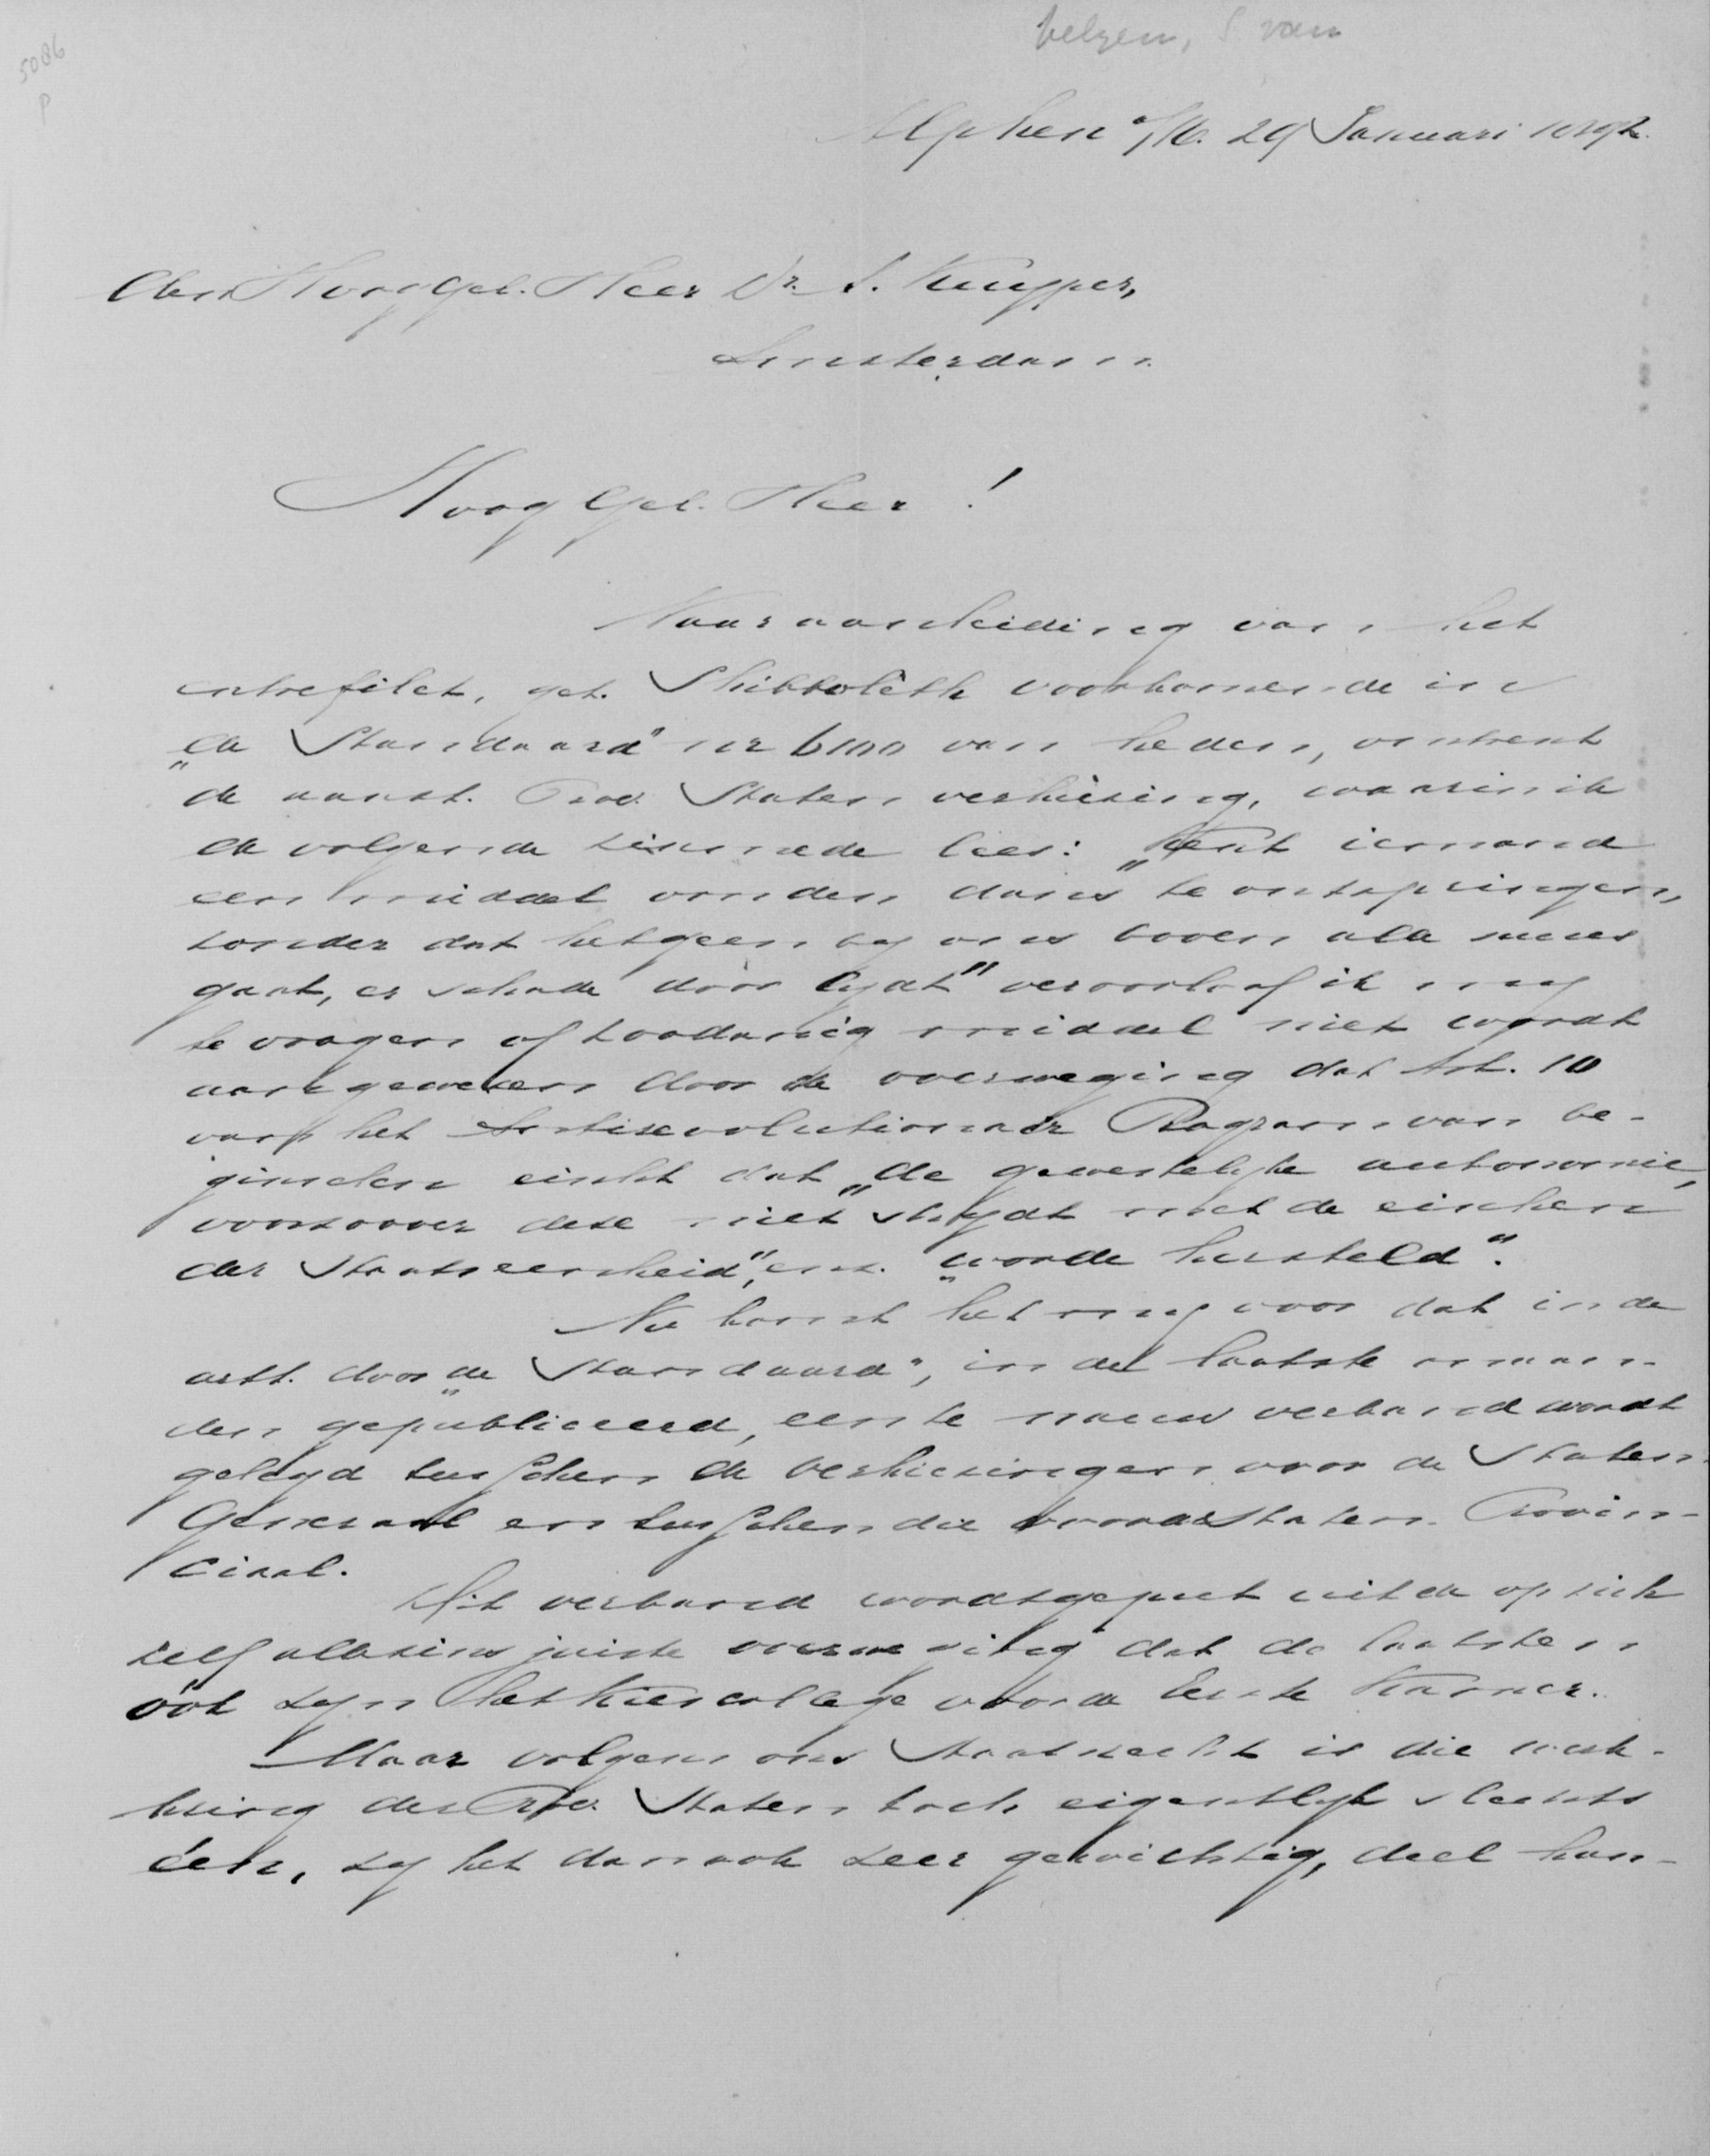 5086
P
Velzen, S van
Alphen a/R. 29 Januari 1892.
Den HoogGel. Heer Dr. A. Kuyper,
Amsterdam.
HoogGel. Heer!
Naar aanleiding van het
entrefilet, get. Shibboleth voorkomende in
„de Standaard" nr 6100 van heden, omtrent
de aanst. Prov. Staten verkiezing, waarin ik
de volgende zinsnede lees: „Kent iemand
een middel om den dans te ontspringen,
zonder dat hetgeen bij ons boven alles
gaat, er schade door lijdt" veroorloof ik mij
te vragen of zoodanig middel niet wordt
aangewezen door de overweging dat Art. 10
van het Antirevolutionair Program van be-
ginselen eischt dat „de gewestelijke autonomie,
voorzoover deze niet strijdt met de eischen
der Staatseenheid", enz. „worde hersteld".
Nu komt het mij voor dat in de
artt. door „de Standaard", in de laatste maan-
den gepubliceerd, een te nauw verband wordt
gelegd tusschen de verkiezingen voor de Staten-
Generaal en tusschen die voor de Staten Provin-
ciaal.
Dit verband wordt geput uit de op zich
zelf alleszins juiste overweging dat de laatsten
óók zijn het kiescollege voor de Eerste Kamer.
Maar volgens ons Staatsrecht is die werk-
king der Prov. Staten toch eigentlijk slechts
één, zij het dan ook zeer gewichtig, deel hun-